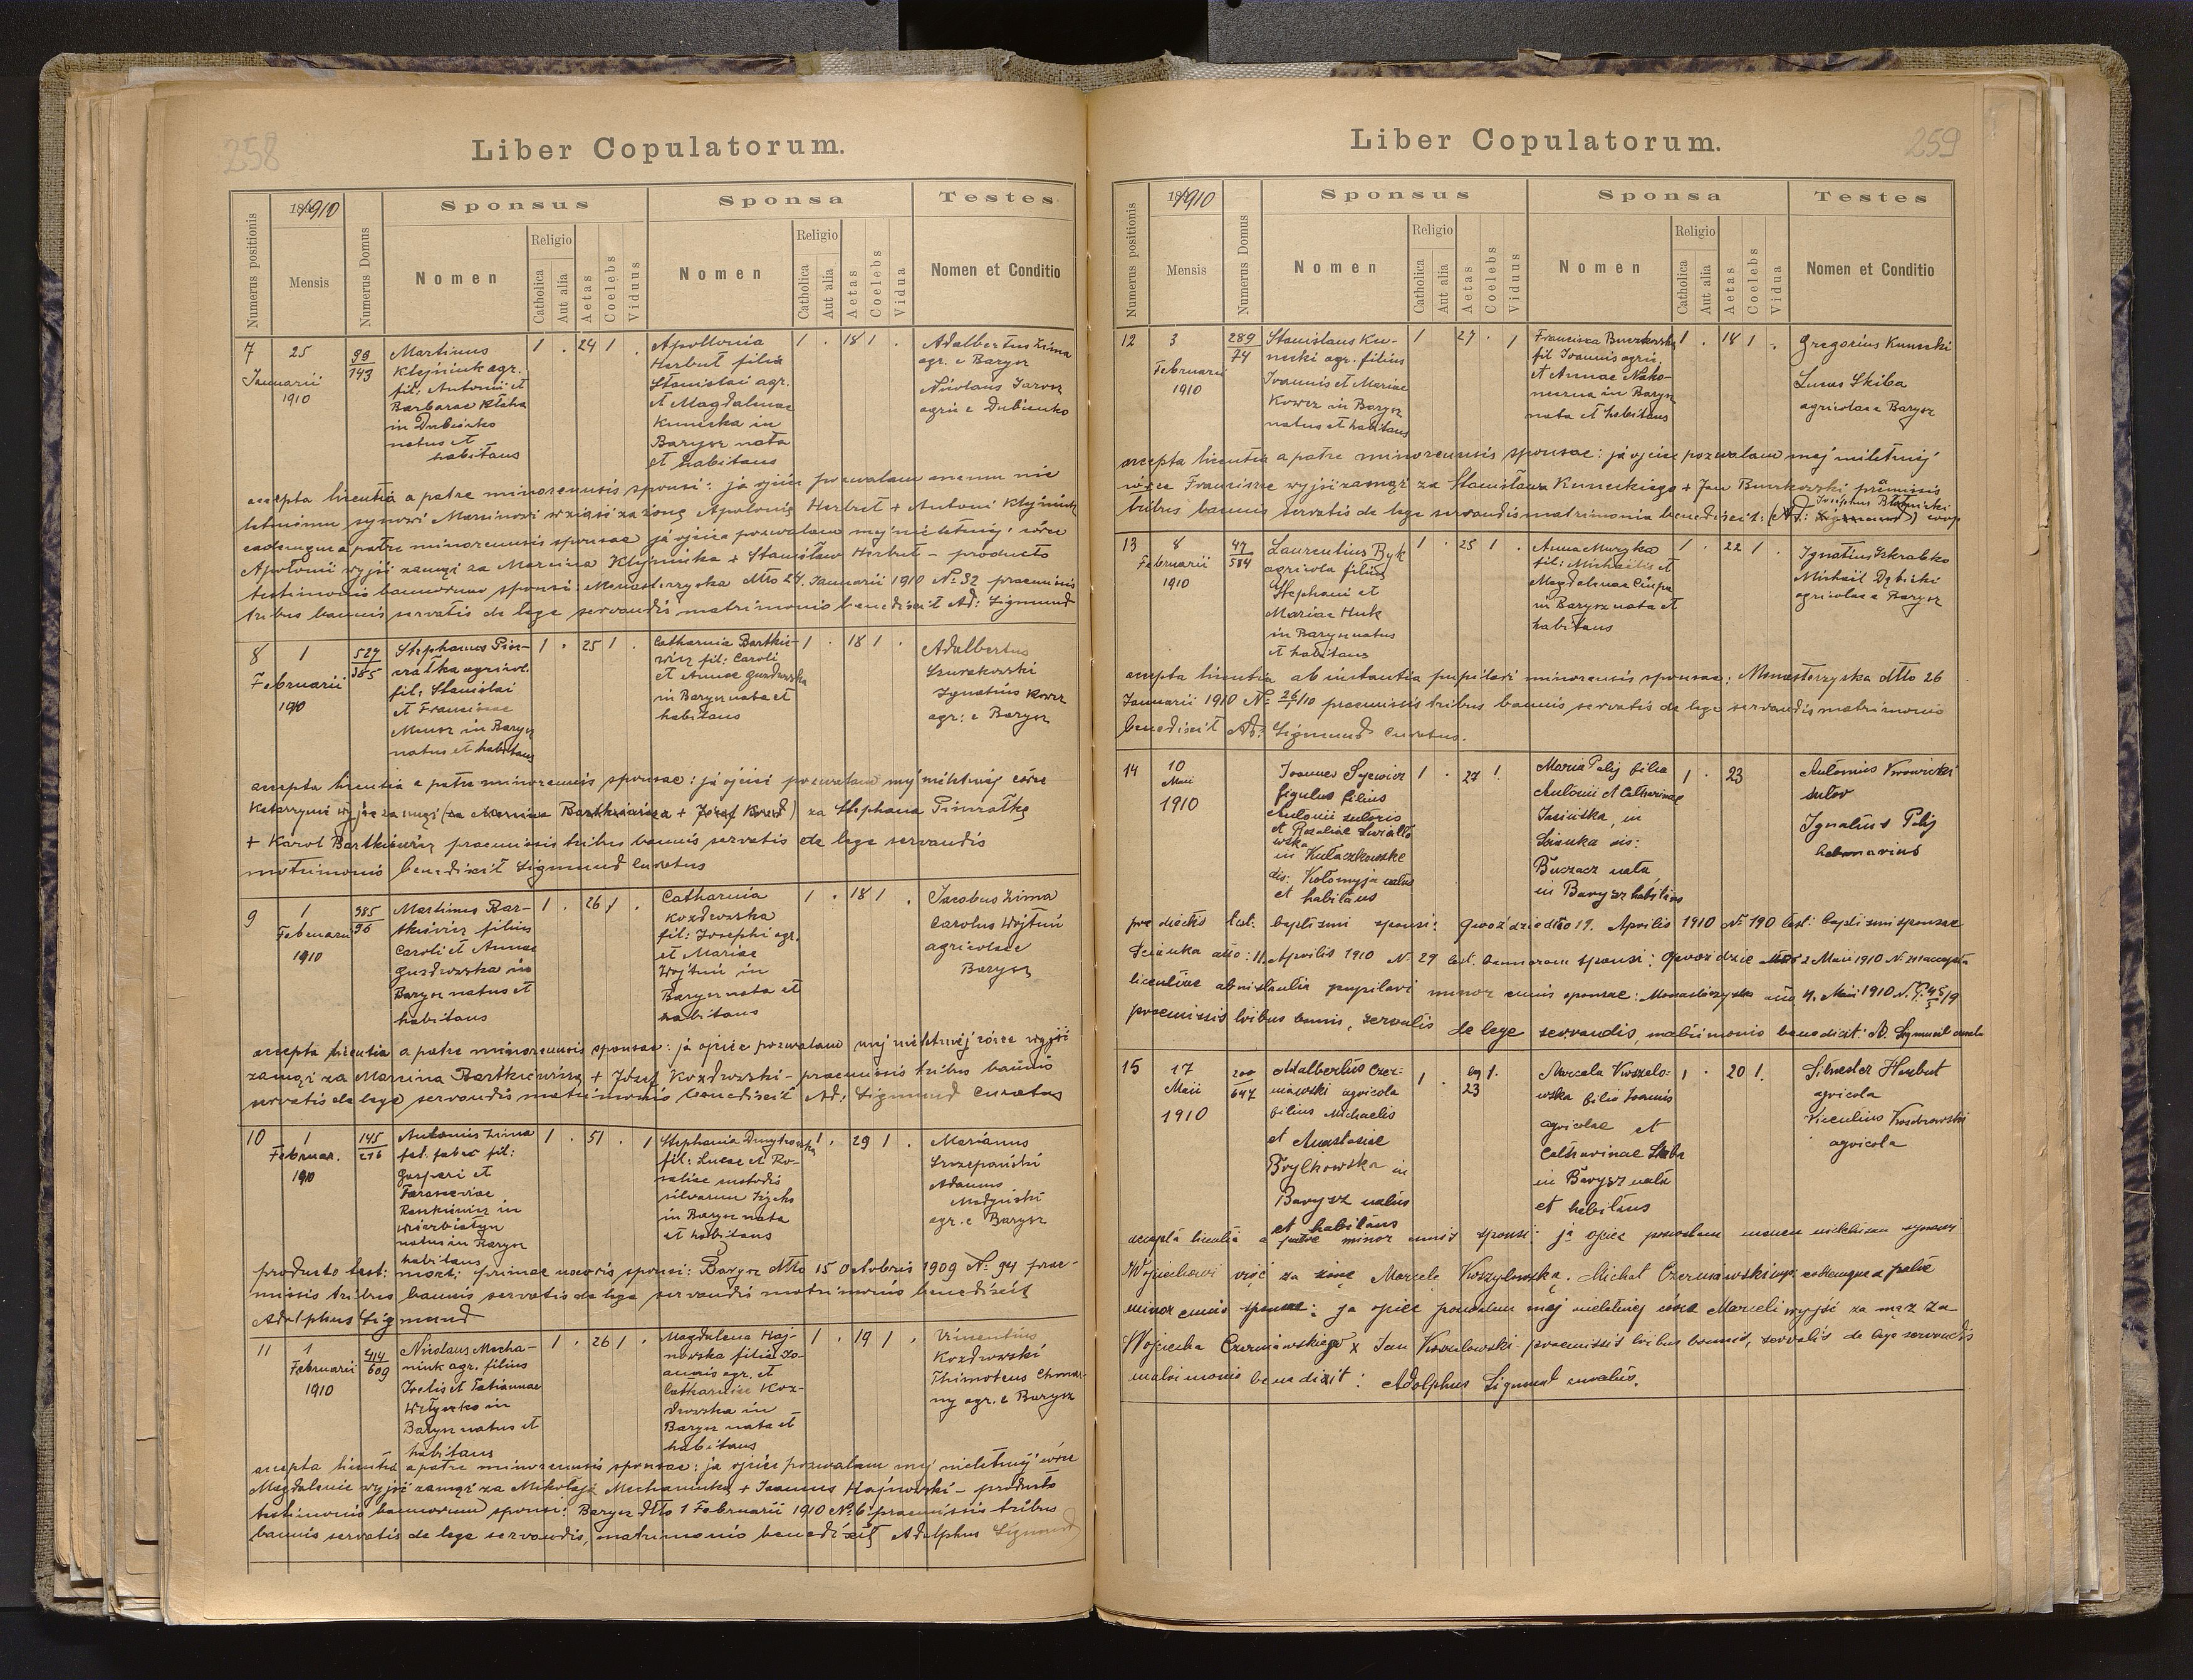 258
Liber Copulatorum.
Numerus positionis
1910
Mensis
Numerus Domus
Sponsus
Nomen
Religio
Catholica
Aut alia
Aetas
Coelebs
Viduus
Sponsa
Nomen
Religio
Catholica
Aut alia
Aetas
Coelebs
Vidua
Testes
Nomen et Conditio
7
25
Januarii
1910
99
143
Martinus
Klejniuk agr.
fil: Antonii et
Barbarae
in
natus et
habitans
1 . 24 1 .
Apollonia
Herbut filia
Stanislai agr.
et Magdalenae
Kunicka in
Barysz nata
et habitans
1 . 18 1 .
Adalbertus Zima
agr. e Barysz
Nicolaus Jarosz
agric e Dubienko
accepta licentia a patre minorennis sponsi: ja ojciec pozwalam memu nie
letniemu synowi Marcinowi wziąść za żonę Apolonię Herbut + Antoni
eademque a patre minorennis sponsae ja ojciec pozwalam mej nieletniej córce
Apolonii wyjść zamąż za Marcina + Stanisław Herbut - producto
testimonio bannorum sponsi: Monasterzyska dtto 24. Januarii 1910 No 32 praemissis
tribus bannis servatis de lege servandis matrimonio benedixit Ad: Sigmund
8
1
Februarii
1910
527
385
Stephanus Pie-
czałka agricol.
fil: Stanislai
et Franciscae
in Barysz
natus et habitans
1 . 25 1 .
Catharina Bartkie-
wicz fil: Caroli
et Annae
in Barysz nata et
habitans
1 . 18 1 .
Adalbertus
Ignatius Kowcz
agr: e Barysz
accepta licentia a patre minorennis sponsae: ja ojciec pozwalam mej nieletniej córce
Katarzynie wyjść zamąż (za Marcina Bartkiewicza + Józef) za Stephana
+ Karol Bartkiewicz praemissis tribus bannis servatis de lege servandis
matrimonio benedixit Sigmund Curatus
9
1
Februarii
1910
385
96
Martinus Bar-
tkiewicz filius
Caroli et Annae
in
Barysz natus et
habitans
1 . 26 1 .
Catharina
Kozdrowska
fil: Josephi agr.
et Mariae
Wojtuń in
Barysz nata et
habitans
1 . 18 1 .
Jacobus Zima
Carolus Wojtuń
agricolae
Barysz
accepta licentia a patre minorennis sponsae: ja ojciec pozwalam mej nieletniej córce wyjść
zamąż za Marcina Bartkiewicza + Józef Kozdrowski - praemissis tribus bannis
servatis de lege servandis matrimonio benedixit Ad: Sigmund Curatus
10
1
Februar.
1910
145
276
Antonius Zima
faber fil:
Gaspari et
in
natus in Barysz
habitans
1 . 51 . 1
Stephania
fil: Lucae et Ro-
saliae custodis
silvarum
in Barysz nata
et habitans
1 . 29 1 .
Marianus
Szczepański
Adamus
agr. e Barysz
producto test: mort: primae uxoris sponsi: Barysz dtto 15 Octobris 1909 No. 94 prae-
missis tribus bannis servatis de lege servandis matrimonio benedixit
Adolphus Sigmund
11
1
Februarii
1910
414
609
Nicolaus Mecha-
niuk agr. filius
et Tatiannae
in
Barysz natus et
habitans
1 . 26 1 .
Magdalena Haj-
nowska filia Jo-
annis agr. et
Catharinae Koz-
drowska in
Barysz nata et
habitans
1 . 19 1 .
Vincentius
Kozdrowski
Thimoteus
agr. e Barysz
accepta licentia a patre minorennis sponsae: ja ojciec pozwalam mej nieletniej córce
Magdalenie wyjść zamąż za Mikołaja Mechaniuka + Joannes Hajnowski - producto
testimonio bannorum sponsi: Barysz dtto 1 Februarii 1910 No 6 praemissis tribus
bannis servatis de lege servandis, matrimonio benedixit Adolphus Sigmund
259
Liber Copulatorum.
Numerus positionis
1910
Mensis
Numerus Domus
Sponsus
Nomen
Religio
Catholica
Aut alia
Aetas
Coelebs
Viduus
Sponsa
Nomen
Religio
Catholica
Aut alia
Aetas
Coelebs
Vidua
Testes
Nomen et Conditio
12
3
Februarii
1910
289
74
Stanislaus Ku-
necki agr. filius
Joannis et Mariae
Kowcz in Barysz
natus et habitans
1 . 27 . 1
Francisca Burkowska
fil Joannis agric.
et Annae Nako-
neczna in Barysz
nata et habitans
1 . 18 1 .
Gregorius Kunecki
Lucas Skiba
agricolae e Barysz
accepta licentia a patre minorennis sponsae: ja ojciec pozwalam mej nieletniej
córce Franciszce wyjść zamąż za Stanisława Kuneckiego + Jan Burkowski praemissis
tribus bannis servatis de lege servandis matrimonio benedixit: (Ad: Sigmund) Josephus coop
13
8
Februarii
1910
47
584
Laurentius Byk
agricola filius
Stephani et
Mariae Huk
in Barysz natus
et habitans
1 . 25 1 .
Anna Muzyka
fil: Michaelis et
Magdalenae
in Barysz nata et
habitans
1 . 22 1 .
Ignatius Szkrabko
Michael Dębicki
agricolae e Barysz
accepta licentia ab instantia pupilari minorennis sponsae: Monasterzyska dtto 26
Januarii 1910 No praemissis tribus bannis servatis de lege servandis matrimonio
benedixit Ad: Sigmund Curatus.
14
10
Maii
1910
Joannes
figulus filius
Antonii sutoris
et Rosaliae
in Kułaczkowce
dis: Kołomyja natus
et habitans
1 . 27 1.
Maria Palij filia
Antonii et Catharinae
Jasińska, in
dis:
Buczacz nata,
in Barysz habitans
1 . 23
Antonius
sutor
Ignatius Palij
producto test. baptismi sponsi: Gwoździec dto 19. Aprilis 1910 No 190 test: baptismi sponsae
dtto: 11 Aprilis 1910 N. 29 test. bannorum sponsi: Gwoździec 2 Maii 1910 N. accepta
licentiae ab instantia pupilari minorennis sponsae: Monasterzyska dtto 4. Maii 1910
praemissis tribus bannis, servatis de lege servandis, matrimonio benedixit: A. Sigmund
15
17
Maii
1910
200
647
Adalbertus Czer-
niawski agricola
filius Michaelis
et Anastasiae
in
Barysz natus
et habitans
1 . 23 1.
Marcela Koszelo-
wska filia Joannis
agricolae et
Catharinae Skiba
in Barysz nata
et habitans
1 . 20 1.
Silvester Herbut
agricola
Vicentius Kozdrowski
agricola
accepta licentia a patre minorennis sponsi: ja ojciec pozwalam memu nieletniemu synowi
Wojciechowi wziąć za żonę Marcelę Koszylowską. Michał Czerniawski eademque a patre
minorennis sponsae: ja ojciec pozwalam mej nieletniej córce Marceli wyjść za mąż za
Wojciecha Czerniawskiego x Jan praemissis tribus bannis, servatis de lege servandis
matrimonio benedixit: Adolphus Sigmund curatus.